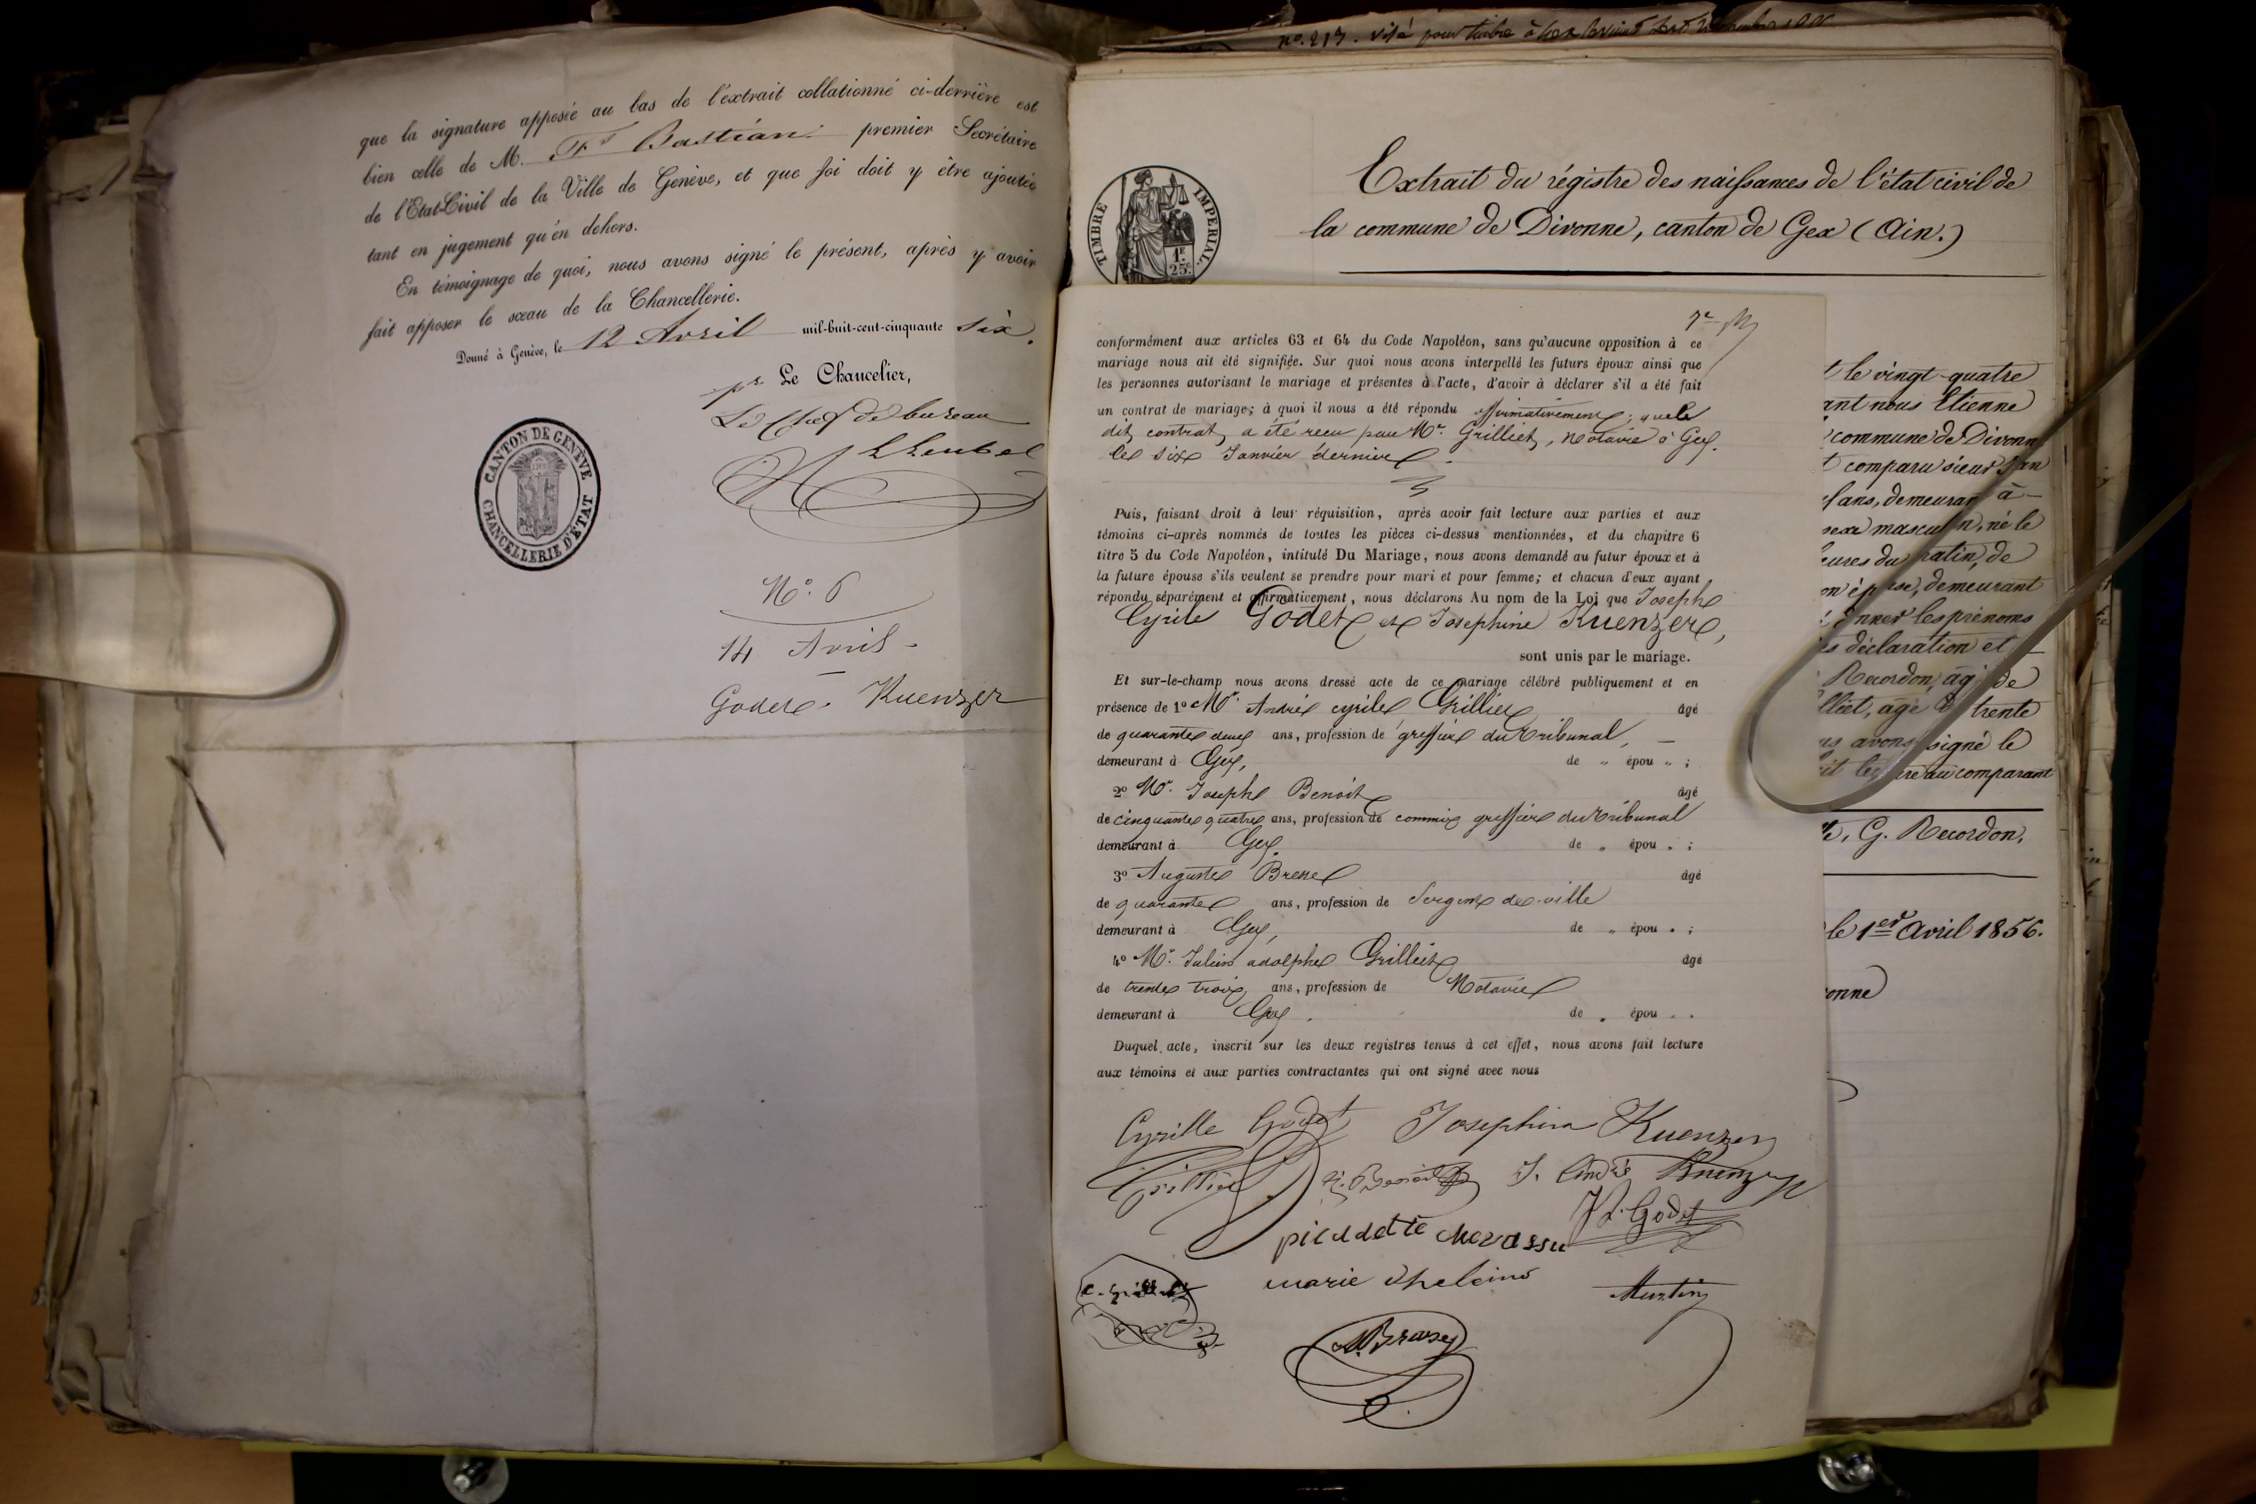 que la signature apposée au bas de l'extrait collationné ci-derrière est
bien celle de M. Bastian premier Secrétaire
de l'Etat-Civil de la Ville de Genève, et que foi doit y être ajoutée
tant en jugement qu'en dehors.
En témoignage de quoi, nous avons signé le présent, après y avoir
fait apposer le sceau de la Chancellerie.
Donné à Genève, le 12 Avril mil-huit-cent-cinquante six.
pr Le Chancelier,
Le Chef de bureau
CANTON DE GENÈVE
CHANCELLERIE D'ÉTAT
No. 6
14 Avril
Godet. Kuenzer
no. 213. Visé pour timbre à Gex
Extrait du régistre des naissances de l'état civil de
la commune de Divonne, canton de Gex (Ain.)
TIMBRE IMPERIAL
1F.
25c
conformément aux articles 63 et 64 du Code Napoléon, sans qu'aucune opposition à ce
mariage nous ait été signifiée. Sur quoi nous avons interpellé les futurs époux ainsi que
les personnes autorisant le mariage et présentes à l'acte, d'avoir à déclarer s'il a été fait
un contrat de mariage; à quoi il nous a été répondu affirmativement; que le
dit contrat a été reçu par Mr. Grilliet, notaire à Gex.
le six Janvier dernier.
Puis, faisant droit à leur réquisition, après avoir fait lecture aux parties et aux
témoins ci-après nommés de toutes les pièces ci-dessus mentionnées, et du chapitre 6
titre 5 du Code Napoléon, intitulé Du Mariage, nous avons demandé au futur époux et à
la future épouse s'ils veulent se prendre pour mari et pour femme; et chacun d'eux ayant
répondu séparément et affirmativement, nous déclarons Au nom de la Loi que Joseph
Cyrile Godet et Josephine Kuenzer,
sont unis par le mariage.
Et sur-le-champ nous avons dressé acte de ce mariage célébré publiquement et en
présence de 1o Mr. André cyrile Grilliet âgé
de quarante deux ans, profession de greffier du Tribunal,
demeurant à Gex, de " épou " ;
2o Mr. Joseph Benoit âgé
de cinquante quatre ans, profession de commis greffier du Tribunal
demeurant à Gex. de " épou " ;
3o Auguste âgé
de quarante ans, profession de Sergent de ville
demeurant à Gex, de " épou " ;
4o Mr. Julien adolphe Grilliet âgé
de trente trois ans, profession de Notaire
demeurant à Gex. de " épou "
Duquel acte, inscrit sur les deux registres tenus à cet effet, nous avons fait lecture
aux témoins et aux parties contractantes qui ont signé avec nous
Cyrille Godet Josephina Kuenzer
Grilliet J. Benoit J. André Kuenzer
Godet
marie
Martin
t le vingt-quatre
ant nous Etienne
commune de Divonn
t comparu sieur
ans, demeurant à
sexe masculin, né le
eures du matin, de
on épouse, demeurant
onner les prénoms
déclaration et
Recordon, âgé de
lliet, âgé de trente
us avons signé le
ait lecture au comparant
G. Recordon,
le 1er Avril 1856.
onne